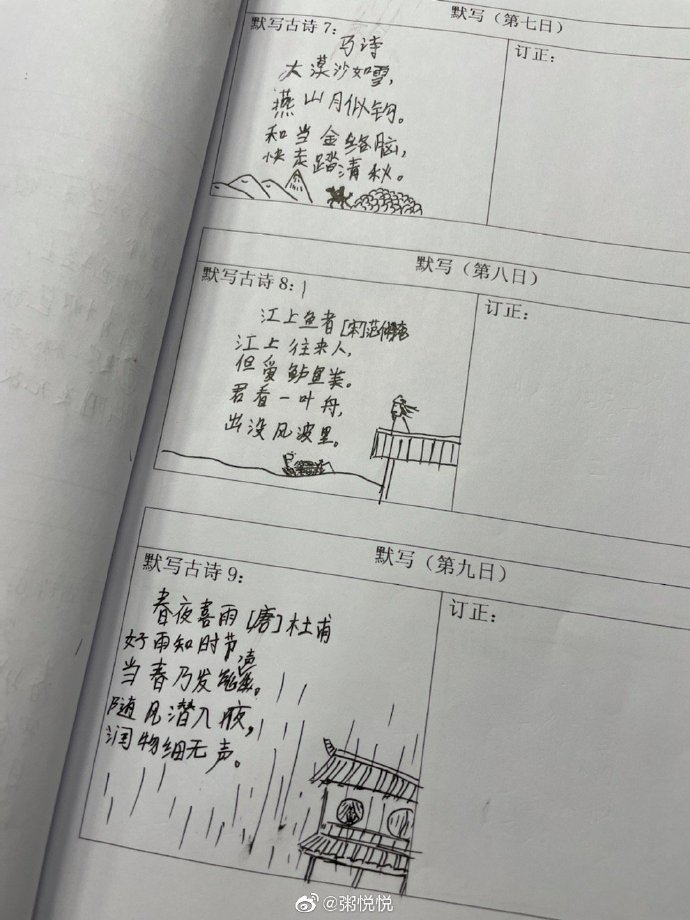 默写（第七日）
默写古诗 7：
订正：
马诗
大漠沙如雪，
燕山月似钩。
和当金络脑，
快走踏清秋。
默写（第八日）
默写古诗 8：
订正：
江上鱼者 [宋]范仲淹
江上往来人，
但爱鲈鱼美。
君看一叶舟，
出没风波里。
默写（第九日）
默写古诗 9：
订正：
春夜喜雨 [唐] 杜甫
好雨知时节，
当春乃发生。
随风潜入夜，
润物细无声。
@粥悦悦